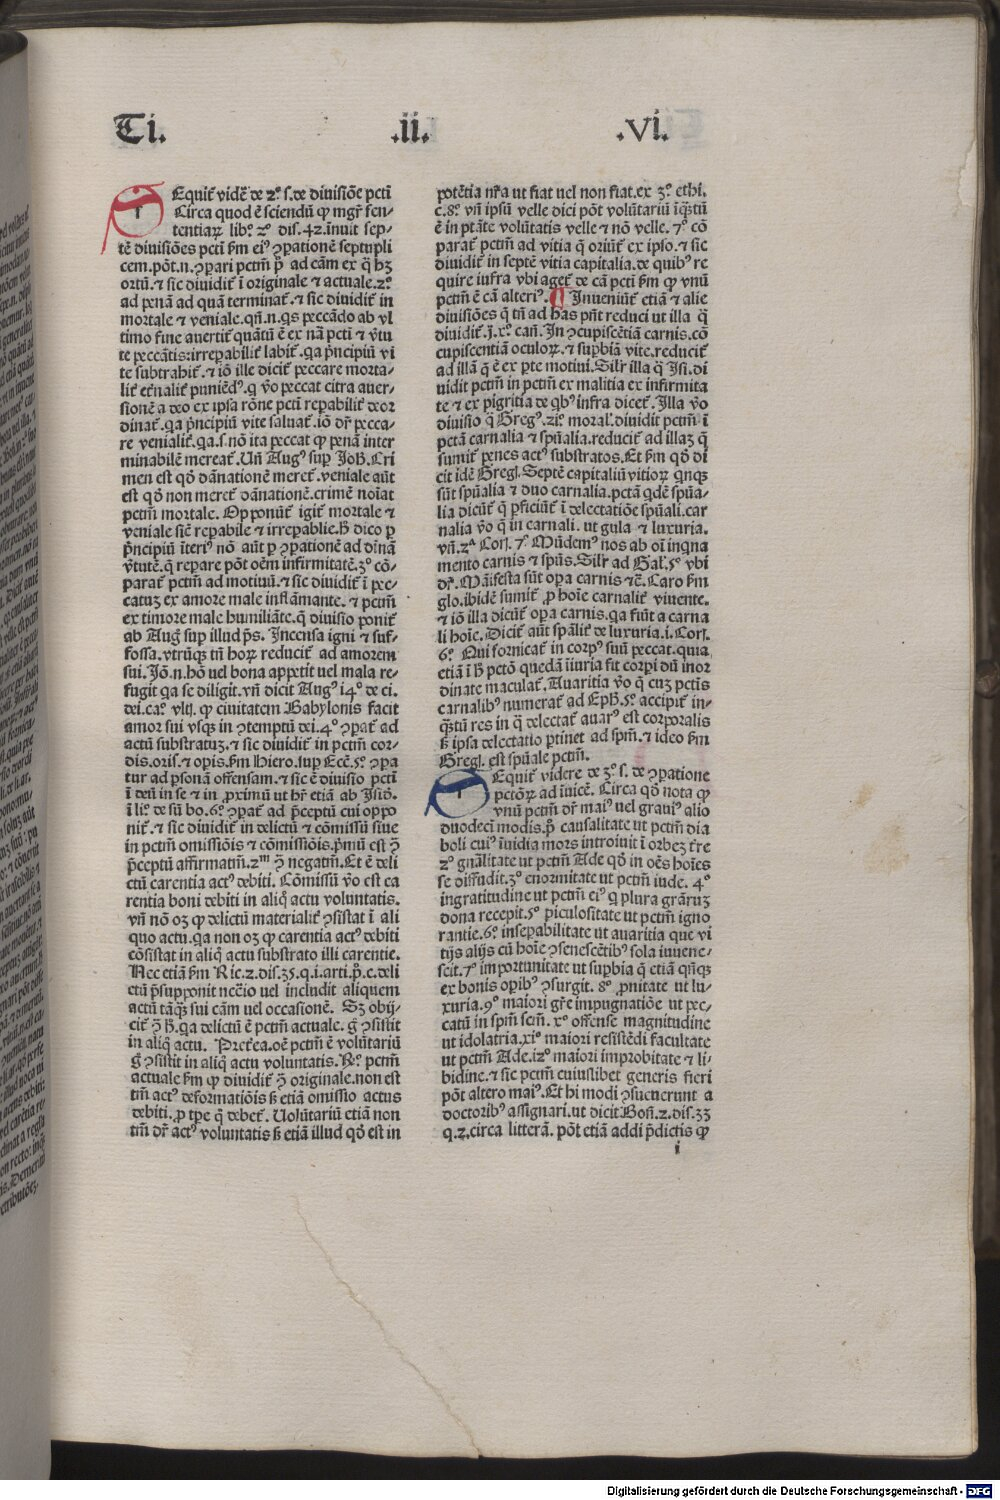 Ti. .ii. .vi.
SEquit᷑ vidē de 2º. s. de divisiōe pcti
Circa quod ē sciendū ꝙ mgr̄ sen-
tentiaꝝ lib.º 2º dis. 42. innuit sep-
tē divisiōes pcti ẜm eiꝰ ꝯpationē septupli
cem. pōt. n. ꝯpari pctm̄ p̄ ad cām ex q̄ hꝫ
ortū. ⁊ sic dividit᷑ ī originale ⁊ actuale. 2º
ad penā ad quā terminat᷑. ⁊ sic dividit᷑ in
mortale ⁊ veniale. qn̄. n. qs peccādo ab vl
timo fine avertit᷑ quātū ē ex nā pcti ⁊ v̄tu
te peccātis: irrepabilit᷑ labit᷑. qa p̄ncipiū vi
te subtrahit᷑. ⁊ iō ille dicit᷑ peccare morta-
lit᷑ et̄nalit᷑ puniēdꝰ. q v̄o peccat citra aver-
sionē a deo ex ipsa rōne pcti repabilit᷑ deor
dinat᷑. qa p̄ncipiū vite salvat᷑. iō dr̄ pecca-
re venialit᷑. qa. s. nō ita peccat ꝙ penā inter
minabilē mereat᷑. Vn̄ Augꝰ sup̄ Joh̄. Cri
men est qd̄ dānationē meret᷑. veniale aūt
est qd̄ non meret᷑ dānationē. crimē noīat
pctm̄ mortale. Opponūt᷑ igit᷑ mortale ⁊
veniale sic̄ repabile ⁊ irrepabile. ꝶ dico ꝑ
p̄ncipiū īteriꝰ nō aūt ꝑ ꝯpationē ad dīnā
v̄tutē. q̄ repare pōt oēm infirmitatē. 3º cō-
parat᷑ pctm̄ ad motivū. ⁊ sic dividit᷑ ī pec-
catuꝫ ex amore male inflāmante. ⁊ pctm̄
ex timore male humiliāte. q̄ divisio ponit᷑
ab Auḡ sup illud ps̄. Incensa igni ⁊ suf-
fossa. vtrūqꝫ tn̄ hoꝝ reducit᷑ ad amorem
sui. Jō. n. hō vel bona appetit vel mala re-
fugit qa se diligit. vn̄ dicit Augꝰ i4º de ci.
dei. caº. vltj. ꝙ civitatem Babylonis facit
amor sui vsqꝫ in ꝯtemptū dei. 4º ꝯpat᷑ ad
actū substratuꝫ. ⁊ sic dividit᷑ in pctm̄ cor-
dis. oris. ⁊ opis. ẜm Hiero. sup Ecc̄. 5º ꝯpa
tur ad ꝑsonā offensam. ⁊ sic ē divisio pcti
ī deū in se ⁊ in ꝓximū ut hr̄ etiā ab Jsid̄.
ī li.º de sū bo. 6º ꝯpat᷑ ad p̄ceptū cui oppo
nit᷑. ⁊ sic dividit᷑ in delictū ⁊ cōmissū sive
in pctm̄ omissiōis ⁊ cōmissiōis. p̄mū est ꝯ̄
p̄ceptū affirmatm̄. 2m ꝯ̄ negatm̄. Et ē deli
ctū carentia actꝰ debiti. Cōmissū v̄o est ca
rentia boni debiti in aliq̄ actu voluntatis.
vn̄ nō oꝫ ꝙ delictū materialit᷑ ꝯsistat ī ali
quo actu. qa non oꝫ ꝙ carentia actꝰ debiti
cōsistat in aliq̄ actu substrato illi carentie.
Nec etiā ẜm Ric. 2. dis. 35. q. i. arti. p̄. c. deli
ctū p̄supponit nec̄io vel includit aliquem
actū tāq̄ꝫ sui cām vel occasionē. Sꝫ obij-
cit᷑ ꝯ̄ ꝶ. qa delictū ē pctm̄ actuale. g̊ ꝯsistit
in aliq̄ actu. Preterea. oē pctm̄ ē volūtariū
g̊ ꝯsistit in aliq̄ actu voluntatis. Rº. pctm̄
actuale ẜm ꝙ dividit᷑ ꝯ̄ originale. non est
tm̄ actꝰ deformatiōis ẜ etiā omissio actus
debiti. ꝓ tpe q̄ debet᷑. Volūtariū etiā non
tm̄ dr̄ actꝰ voluntatis ẜ etiā illud qd̄ est in
potētia nr̄a ut fiat vel non fiat. ex 3º. ethi.
c. 8º. vn̄ ipsū velle dici pōt volūtariū īq̄ꝫtū
ē in ptāte volūtatis velle ⁊ nō velle. 7º cō
parat᷑ pctm̄ ad vitia q̄ oriūt᷑ ex ipso. ⁊ sic
dividit᷑ in septē vitia capitalia. de quibꝰ re
quire infra vbi aget᷑ de cā pcti ẜm ꝙ vnū
pctm̄ ē cā alteriꝰ. ¶ Inveniūt᷑ etiā ⁊ alie
divisiōes q̄ tn̄ ad has pn̄t reduci ut illa q̄
dividit᷑. j. xº. can̄. In ꝯcupiscētiā carnis. cō
cupiscentiā oculoꝝ. ⁊ supbiā vite. reducit᷑
ad illā q̄ ē ex ꝑte motivi. Silr̄ illa q̄ Jsi. di
vidit pctm̄ in pctm̄ ex malitia ex infirmita
te ⁊ ex pigritia de qbꝰ infra dicet᷑. Illa v̄o
divisio q̄ Gregꝰ. 2iº moral. dividit pctm̄ ī
pctā carnalia ⁊ spūalia. reducit᷑ ad illaꝫ q̄
sumit᷑ penes actꝰ substratos. Et ẜm qd̄ di
cit idē Gregl. Septē capitaliū vitioꝝ qnqꝫ
sūt spūalia ⁊ duo carnalia. pctā qdē spūa-
lia dicūt᷑ q̄ ꝑficiūt᷑ ī delectatiōe spūali. car
nalia v̄o q̄ in carnali. ut gula ⁊ luxuria.
vn̄. 2ª Corī. 7º Mūdemꝰ nos ab oī inqna
mento carnis ⁊ spūs. Silr̄ ad Gal. 5º vbi
dr̄. Māifesta sūt opa carnis ⁊c̄. Caro ẜm
glo. ibidē sumit᷑ ꝓ hoīe carnalit᷑ vivente.
⁊ iō illa dicūt᷑ opa carnis. qa fiūt a carna
li hoīe. Dicit᷑ aūt spālit᷑ de luxuria. i. Corī.
6º. Qui fornicat᷑ in corpꝰ suū peccat. quia
etiā ī ꝶ pctō quedā iniuria fit corpi dū inor
dinate maculat᷑. Avaritia v̄o q̄ cuꝫ pctīs
carnalibꝰ numerat᷑ ad Eph̄. 5º. accipit᷑ in-
q̄ꝫtū res in q̄ delectat᷑ avarꝰ est corporalis
ẜ ipsa delectatio ꝑtinet ad spm̄. ⁊ ideo ẜm
Gregl. est spūale pctm̄.
SEquit᷑ videre de 3º. s. de ꝯpatione
pctōꝝ ad īvicē. Circa qd̄ nota ꝙ
vnū pctm̄ dr̄ maiꝰ vel graviꝰ alio
duodecī modis. p̄. causalitate ut pctm̄ dia
boli cuiꝰ īvidia mors introivit ī orbeꝫ tr̄re
2º gn̄alitate ut pctm̄ Ade qd̄ in oēs hoīes
se diffudit. 3º enormitate ut pctm̄ iude. 4º
ingratitudine ut pctm̄ eiꝰ q plura grāruꝫ
dona recepit. 5º ꝑiculositate ut pctm̄ igno
rantie. 6º insepabilitate ut avaritia que vi
tijs alijs cū hoīe ꝯsenescētibꝰ sola iuvene-
scit. 7º importunitate ut supbia q̄ etiā qn̄qꝫ
ex bonis opibꝰ ꝯsurgit. 8º ꝓnitate ut lu-
xuria. 9º maiori gr̄e impugnatiōe ut pec-
catū in spm̄ scm̄. xº offense magnitudine
ut idolatria. xiº maiori resistēdi facultate
ut pctm̄ Ade. i2º maiori improbitate ⁊ li-
bidine. ⁊ sic pctm̄ cuiuslibet generis fieri
pōt altero maiꝰ. Et hi modi ꝯsueverunt a
doctoribꝰ assignari. ut dicit Bon̄. 2. dis. 33
q. 2. circa litterā. pōt etiā addi p̄dictis ꝙ
i
Digitalisierung gefördert durch die Deutsche Forschungsgemeinschaft - DFG